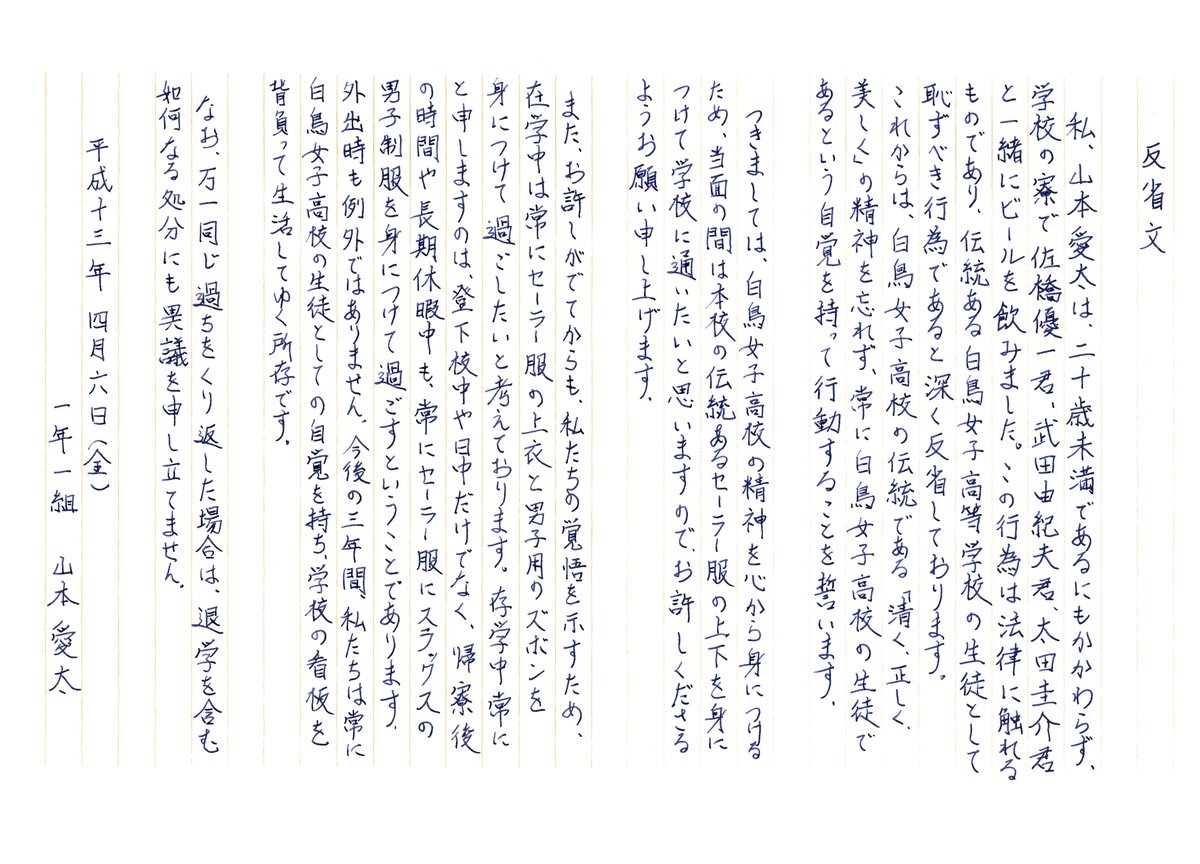 反省文
私、山本愛太は、二十歳未満であるにもかかわらず、
学校の寮で佐橋優一君、武田由紀夫君、太田圭介君
と一緒にビールを飲みました。この行為は法律に触れる
ものであり、伝統ある白鳥女子高等学校の生徒として
恥ずべき行為であると深く反省しております。
これからは、白鳥女子高校の伝統である「清く、正しく、
美しく」の精神を忘れず、常に白鳥女子高校の生徒で
あるという自覚を持って行動することを誓います。
つきましては、白鳥女子高校の精神を心から身につける
ため、当面の間は本校の伝統あるセーラー服の上下を身に
つけて学校に通いたいと思いますので、お許しくださる
ようお願い申し上げます。
また、お許しがでてからも、私たちの覚悟を示すため、
在学中は常にセーラー服の上衣と男子用のズボンを
身につけて過ごしたいと考えております。在学中常に
と申しますのは、登下校中や日中だけでなく、帰寮後
の時間や長期休暇中も、常にセーラー服にスラックスの
男子制服を身につけて過ごすということであります。
外出時も例外ではありません。今後の三年間、私たちは常に
白鳥女子高校の生徒としての自覚を持ち、学校の看板を
背負って生活してゆく所存です。
なお、万一同じ過ちをくり返した場合は、退学を含む
如何なる処分にも異議を申し立てません。
平成十三年 四月六日(金)
一年一組 山本愛太